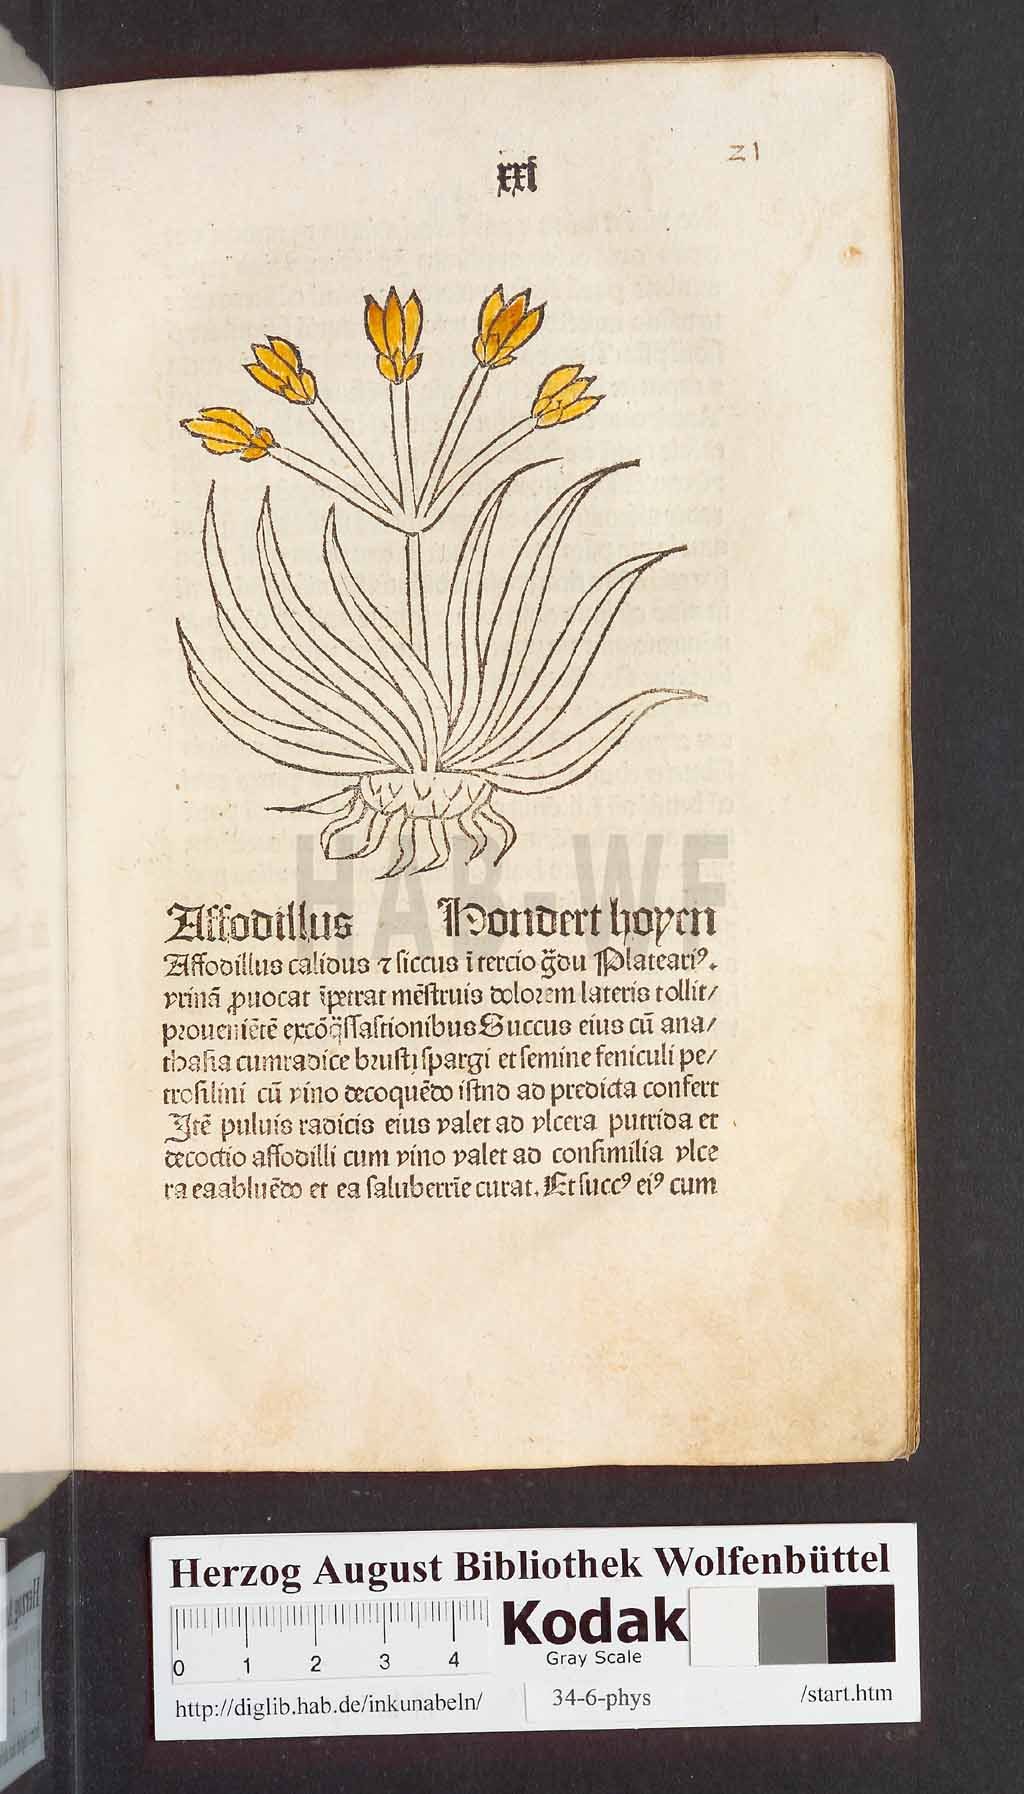 21
xxi
Affodillus Hondert hoyen
Affodillus calidus ⁊ siccus ī tercio g̃du Plateariꝰ.
vrinā ꝓuocat īpetrat mēstruis dolorem lateris tollit/
proueniētē excōq̄ssastionibus Succus eius cū ana/
thasia cumradice brusti spargi et semine feniculi pe/
trosilini cū vino decoquēdo istud ad predicta confert
Itē puluis radicis eius valet ad vlcera putrida et
decoctio affodilli cum vino valet ad consimilia vlce
ra eaabluēdo et ea saluberrīe curat. Et succꝰ eiꝰ cum
HAB-WF
Herzog August Bibliothek Wolfenbüttel
0 1 2 3 4
Kodak
Gray Scale
http://diglib.hab.de/inkunabeln/ 34-6-phys /start.htm